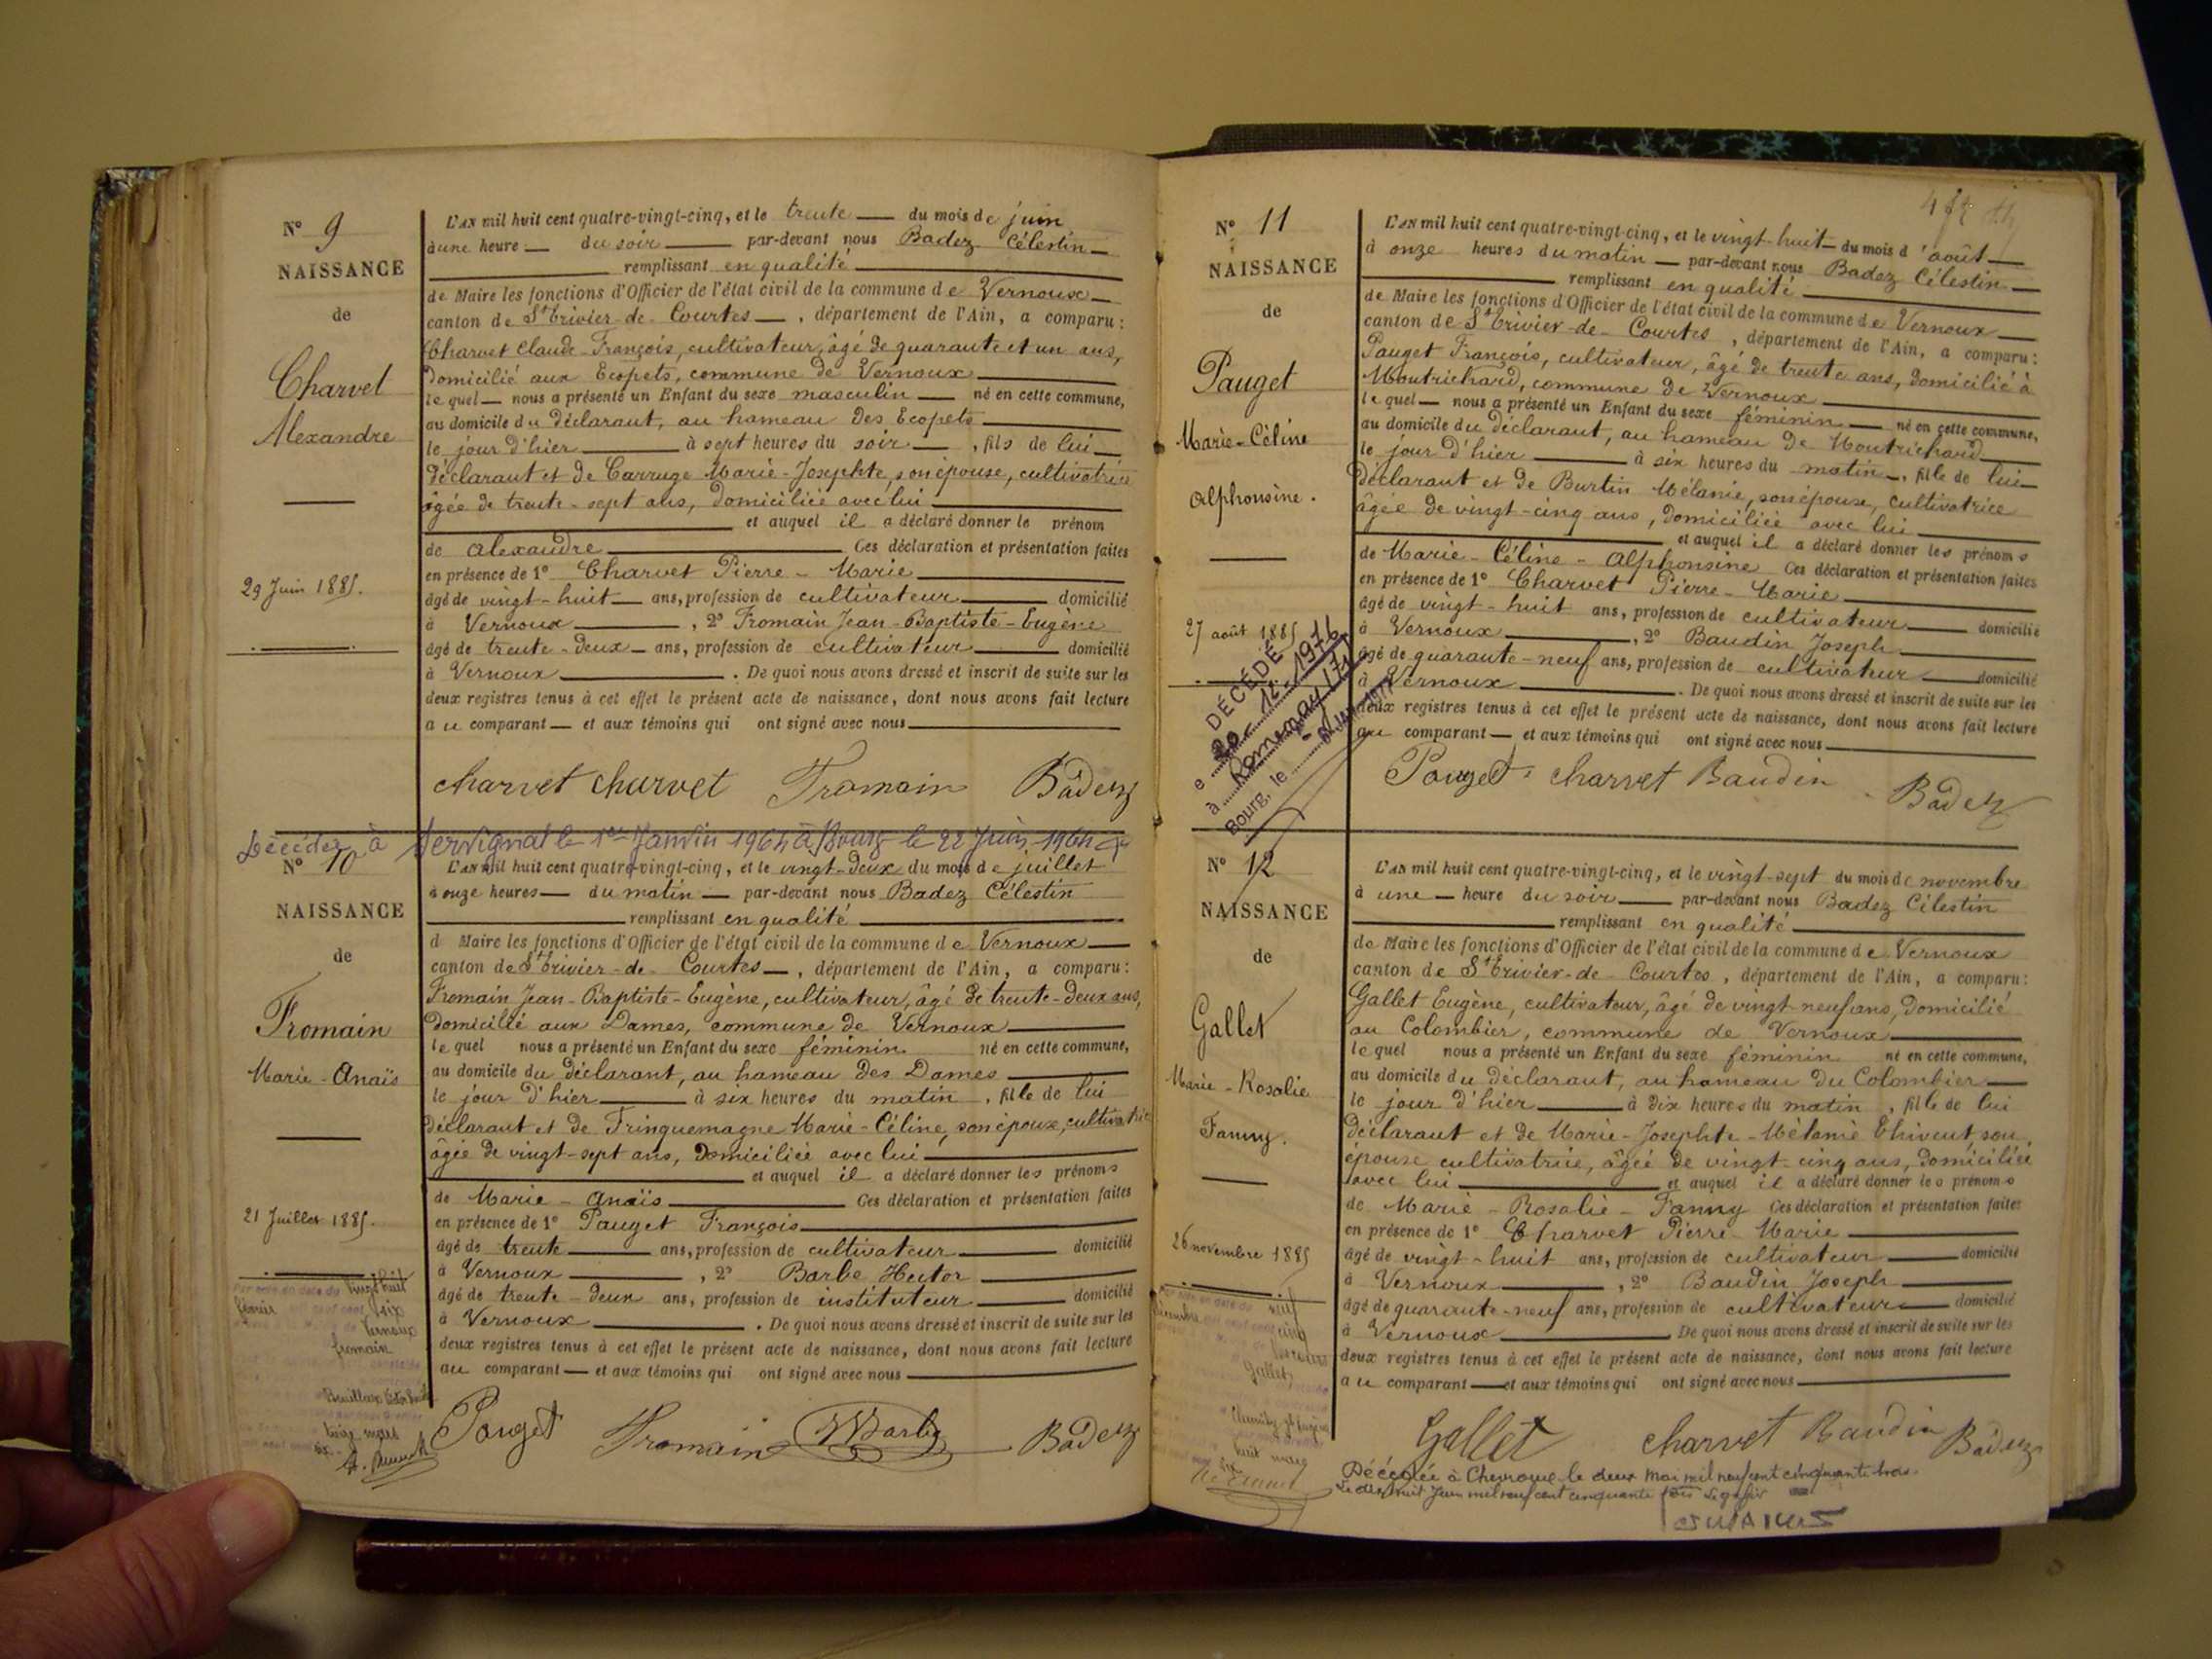 N° 9
NAISSANCE
de
Charvet
Alexandre
29 Juin 1885.
L'AN mil huit cent quatre-vingt-cinq, et le trente du mois de juin
à une heure du soir par-devant nous Badez Célestin
remplissant en qualité
de Maire les fonctions d'Officier de l'état civil de la commune de Vernoux
canton de St Trivier-de-Courtes, département de l'Ain, a comparu :
Charvet Claude-François, cultivateur, âgé de quarante et un ans,
domicilié aux Ecopets, commune de Vernoux
lequel nous a présenté un Enfant du sexe masculin né en cette commune,
au domicile du déclarant, au hameau des Ecopets
le jour d'hier à sept heures du soir, fils de lui
déclarant et de Carruge Marie-Josephte, son épouse, cultivatrice
âgée de trente-sept ans, domiciliée avec lui
et auquel il a déclaré donner le prénom
de Alexandre Ces déclaration et présentation faites
en présence de 1° Charvet Pierre-Marie
âgé de vingt-huit ans, profession de cultivateur domicilié
à Vernoux, 2° Fromain Jean-Baptiste-Eugène
âgé de trente-deux ans, profession de cultivateur domicilié
à Vernoux. De quoi nous avons dressé et inscrit de suite sur les
deux registres tenus à cet effet le présent acte de naissance, dont nous avons fait lecture
au comparant et aux témoins qui ont signé avec nous
charvet charvet Fromain Badez
Décédée à Servignat le 1er Janvier 1964 à Bourg le 22 Juin 1964
N° 10
NAISSANCE
de
Fromain
Marie-Anaïs
21 Juillet 1885.
vingt huit
février six
Vernoux
fromain
L'AN mil huit cent quatre-vingt-cinq, et le vingt-deux du mois de juillet
à onze heures du matin par-devant nous Badez Célestin
remplissant en qualité
d Maire les fonctions d'Officier de l'état civil de la commune de Vernoux
canton de St Trivier-de-Courtes, département de l'Ain, a comparu :
Fromain Jean-Baptiste-Eugène, cultivateur, âgé de trente-deux ans,
domicilié aux Dames, commune de Vernoux
lequel nous a présenté un Enfant du sexe féminin né en cette commune,
au domicile du déclarant, au hameau des Dames
le jour d'hier à six heures du matin, fille de lui
déclarant et de Trinquemagne Marie-Céline, son épouse, cultivatrice
âgée de vingt-sept ans, domiciliée avec lui
et auquel il a déclaré donner les prénoms
de Marie-Anaïs Ces déclaration et présentation faites
en présence de 1° Pauget François
âgé de trente ans, profession de cultivateur domicilié
à Vernoux, 2° Barbe Hector
âgé de trente-deux ans, profession de instituteur domicilié
à Vernoux. De quoi nous avons dressé et inscrit de suite sur les
deux registres tenus à cet effet le présent acte de naissance, dont nous avons fait lecture
au comparant et aux témoins qui ont signé avec nous
Pauget Fromain HBarbe Badez
N° 11
NAISSANCE
de
Pauget
Marie-Céline
Alphonsine.
27 août 1885
DÉCÉDÉ
e 20 12 1976
à Romenay (71)
Bourg, le
L'AN mil huit cent quatre-vingt-cinq, et le vingt-huit du mois d'août
à onze heures du matin par-devant nous Badez Célestin
remplissant en qualité
de Maire les fonctions d'Officier de l'état civil de la commune de Vernoux
canton de St Trivier-de-Courtes, département de l'Ain, a comparu :
Pauget François, cultivateur, âgé de trente ans, domicilié à
Montrichard, commune de Vernoux
lequel nous a présenté un Enfant du sexe féminin né en cette commune,
au domicile du déclarant, au hameau de Montrichard
le jour d'hier à six heures du matin, fille de lui
déclarant et de Burtin Mélanie, son épouse, cultivatrice
âgée de vingt-cinq ans, domiciliée avec lui
et auquel il a déclaré donner les prénoms
de Marie-Céline-Alphonsine Ces déclaration et présentation faites
en présence de 1° Charvet Pierre-Marie
âgé de vingt-huit ans, profession de cultivateur domicilié
à Vernoux, 2° Baudin Joseph
âgé de quarante-neuf ans, profession de cultivateur domicilié
à Vernoux. De quoi nous avons dressé et inscrit de suite sur les
deux registres tenus à cet effet le présent acte de naissance, dont nous avons fait lecture
au comparant et aux témoins qui ont signé avec nous
Pauget charvet Baudin Badez
N° 12
NAISSANCE
de
Gallet
Marie-Rosalie
Fanny.
26 novembre 1885
neuf
cinq
Gallet
huit mars
L'AN mil huit cent quatre-vingt-cinq, et le vingt-sept du mois de novembre
à une heure du soir par-devant nous Badez Célestin
remplissant en qualité
de Maire les fonctions d'Officier de l'état civil de la commune de Vernoux
canton de St Trivier-de-Courtes, département de l'Ain, a comparu :
Gallet Eugène, cultivateur, âgé de vingt-neuf ans, domicilié
au Colombier, commune de Vernoux
lequel nous a présenté un Enfant du sexe féminin né en cette commune,
au domicile du déclarant, au hameau du Colombier
le jour d'hier à dix heures du matin, fille de lui
déclarant et de Marie-Josephte-Mélanie Thivent, son
épouse cultivatrice, âgée de vingt-cinq ans, domiciliée
avec lui et auquel il a déclaré donner les prénoms
de Marie-Rosalie-Fanny Ces déclaration et présentation faites
en présence de 1° Charvet Pierre-Marie
âgé de vingt-huit ans, profession de cultivateur domicilié
à Vernoux, 2° Baudin Joseph
âgé de quarante-neuf ans, profession de cultivateur domicilié
à Vernoux De quoi nous avons dressé et inscrit de suite sur les
deux registres tenus à cet effet le présent acte de naissance, dont nous avons fait lecture
au comparant et aux témoins qui ont signé avec nous
Gallet charvet Baudin Badez
Décédée à Chevroux le deux mai mil neuf cent cinquante trois.
Le dix huit Juin mil neuf cent cinquante trois Le greffier